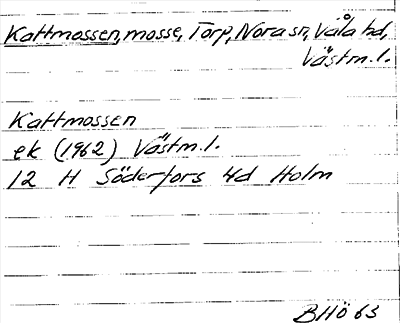 Kattmossen, mosse, Torp, Nora sn, Våla hd,
Västm.l.
Kattmossen
ek (1962) Västm.l.
12 H Söderfors 4d Holm
BHö 63